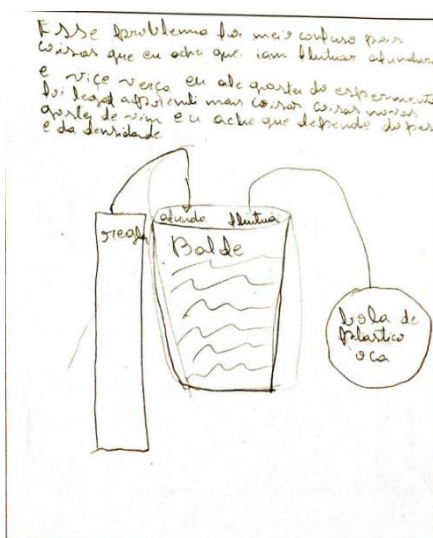 Esse problema foi meio confuso pois
coisas que eu acho que iam flutuar afundaram
e viçe verça eu ate gostei do esperimento
foi legal apprendi mais coisas coisas novas
gostei de vim e eu acho que depende do peso
e da densidade
afunda flutua
regla
Balde
bola de
plastico
oca